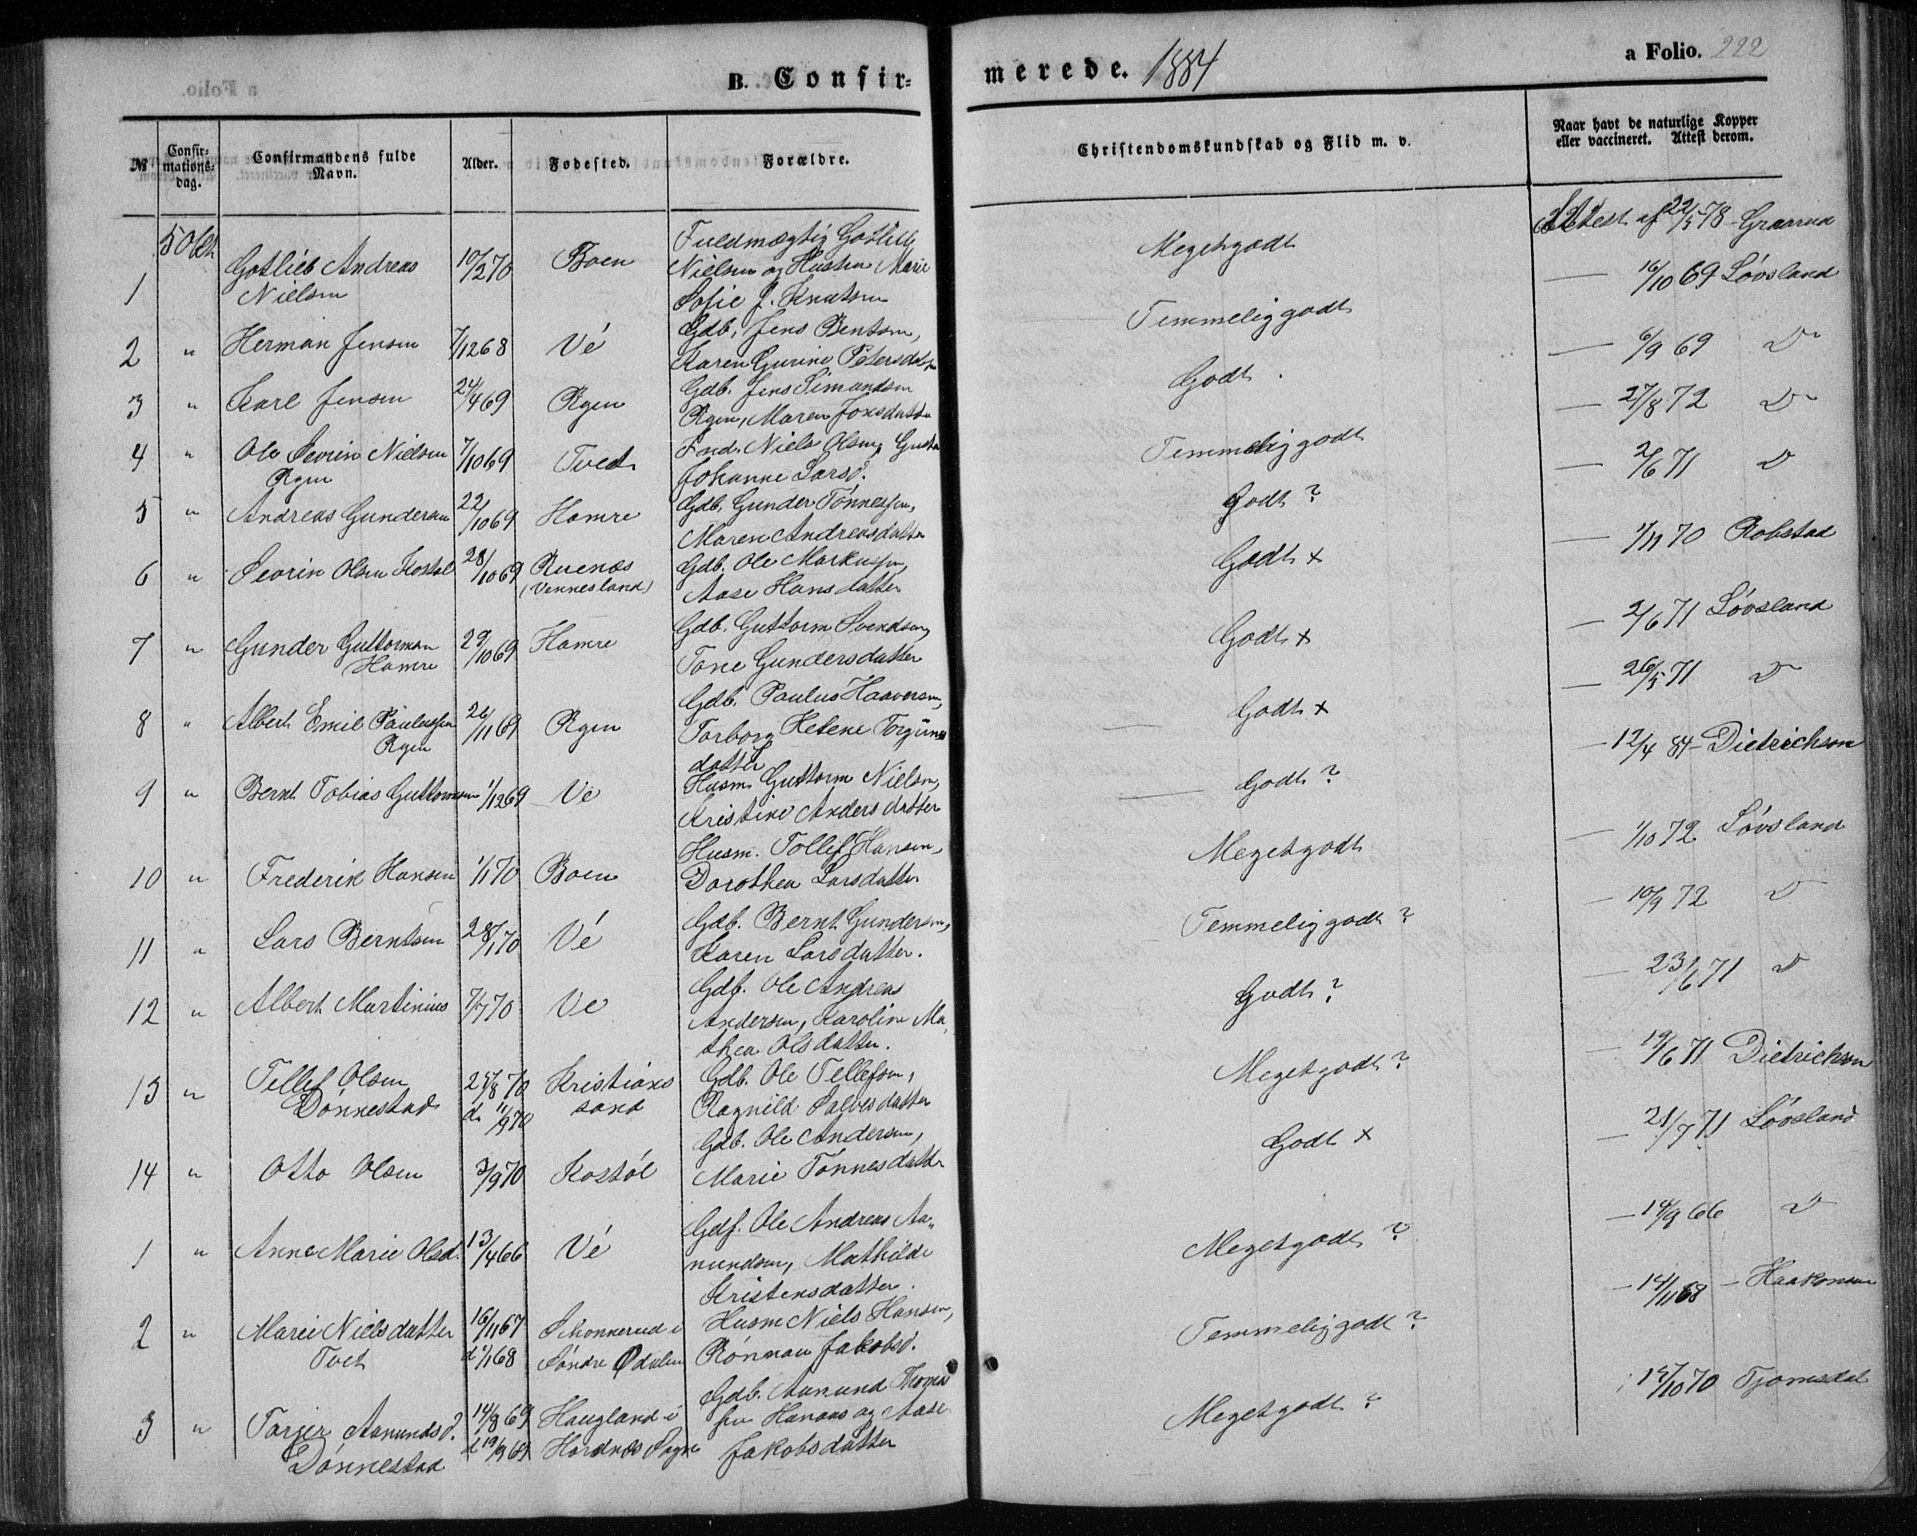 B. Confirmerede. 1884
a Folio. 222
№
Confirmationsdag.
Confirmandens fulde Navn.
Alder.
Fødested.
Forældre.
Christendomskundskab og Flid m. v.
Naar havt de naturlige Kopper eller vaccineret. Attest derom.
5 Okt
1 Gotlieb Andreas Nielsen 10/2 70 Boen Fuldmægtig Gotlieb Nielsen og Hustru Marie Sofie J. Knutsen Megetgodt Attest af 22/5 78 Graarud
2 " Herman Jensen 7/12 68 Vé Gdb. Jens Bentsen, Karen Gurine Petersdatter Temmeliggodt — 16/10 69 Løvsland
3 " Karl Jensen 24/4 69 Rgen Gdb. Jens Simondsen Rgen, Maren Jensdatter Godt — 6/9 69 D
4 " Ole Severin Nielsen Rgen 7/10 69 Tvet Niels Olsen, Johanne Larsd. Temmeliggodt — 27/8 72 D
5 " Andreas Gundersen 22/10 69 Hamre Gdb. Gunder Tønnessen, Maren Andreasdatter Godt ? — 2/6 71 D
6 " Severin Olsen Kostøl 28/10 69 Ruenæs (Vennesland) Gdb. Ole Markussen, Aase Hansdatter Godt x — 1/11 70 Robstad
7 " Gunder Guttormsen Hamre 29/10 69 Hamre Gdb. Guttorm Svendsen, Tone Gundersdatter Godt x — 2/6 71 Løvsland
8 " Albert Emil Paulussen Rgen 26/11 69 Rgen Gdb. Paulus Haaversen, Torborg Helene datter Godt x — 26/5 71 D
9 " Bernt Tobias Guttormsen 1/12 69 Vé Husm. Guttorm Nielsen, Kristine Andersdatter Godt ? — 12/4 84 Dietrichson
10 " Frederik Hansen 1/1 70 Boen Husm. Tollef Hansen, Dorothea Larsdatter Megetgodt — 1/10 72 Løvsland
11 " Lars Berntsen 28/1 70 Vé Gdb. Bernt Gundersen, Karen Larsdatter. Temmeliggodt ? — 10/9 72 D
12 " Albert Martinius 7/7 70 Vé Gdb. Ole Andreas Andersen, Karoline Mathea Olsdatter. Godt ? — 23/6 71 D
13 " Tellef Olsen Dønnestad 25/8 70 d. 11/9 70 Kristianssand Gdb. Ole Tellefsen, Ragnild Salvesdatter Megetgodt ? — 19/6 71 Dietrichson
14 " Otto Olsen 3/9 70 Kostøl Gdb. Ole Andersen, Marie Tønnesdatter Godt x — 21/7 71 Løvsland
1 " Anne Marie Olsd. 13/4 66 Vé Gdf. Ole Andreas Aanundsen, Mathilde Kristensdatter. Megetgodt ? — 14/9 66 D
2 " Marie Nielsdatter Tvet 16/11 67 d 1/1 68 Skonnerud i Søndre Odalen Husm Niels Hansen, Rønnau Jakobsd. Temmeliggodt ? — 14/11 68 — Haakonsen
3 " Torjer Aanundsd. Dønnestad 14/8 69 d 19/9 69 Haugland i Hordnæs Sogn Gdb. Aanund og Aase Jakobsdatter Megetgodt ? 17/10 70 Tjomsdal